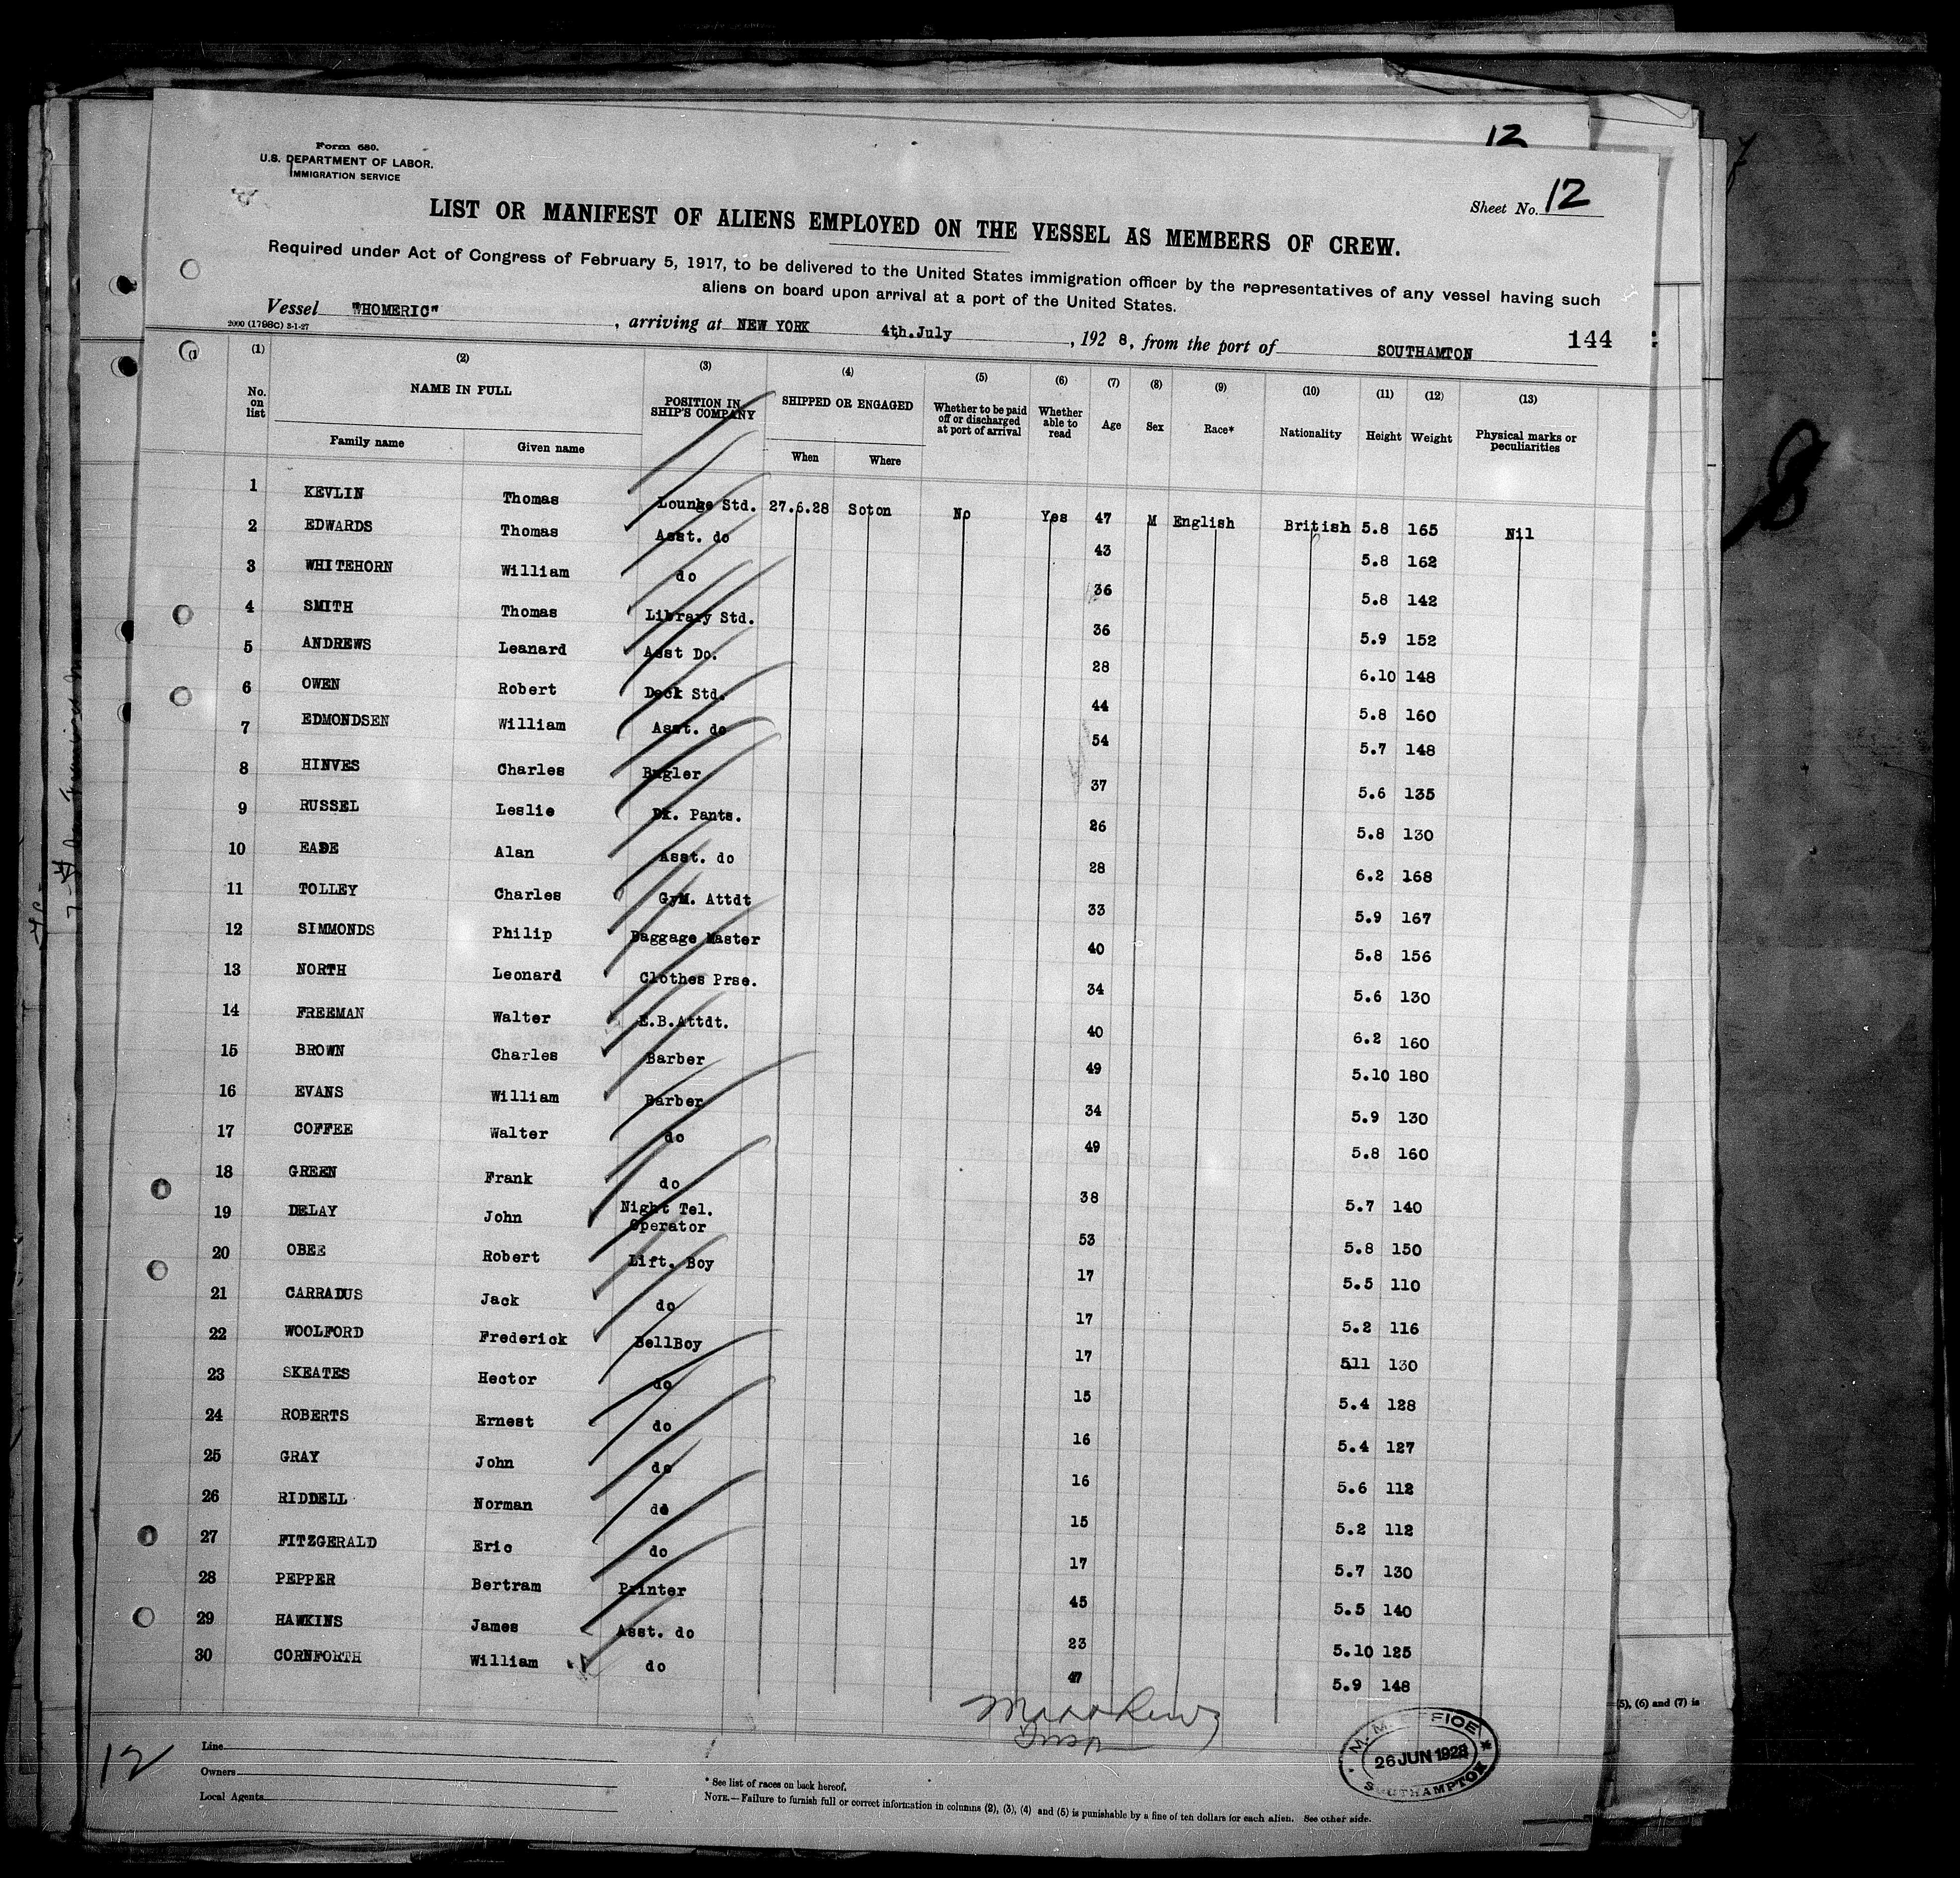 12
Form 680.
U.S. DEPARTMENT OF LABOR.
IMMIGRATION SERVICE
Sheet No. 12
LIST OR MANIFEST OF ALIENS EMPLOYED ON THE VESSEL AS MEMBERS OF CREW.
Required under Act of Congress of February 5, 1917, to be delivered to the United States immigration officer by the representatives of any vessel having such
aliens on board upon arrival at a port of the United States.
Vessel "HOMERIC", arriving at NEW YORK 4th.July, 192 8, from the port of SOUTHAMTON 144
2000 (1798c) 3-1-27
(1) (2) (3) (4) (5) (6) (7) (8) (9) (10) (11) (12) (13)
No. on list NAME IN FULL POSITION IN SHIP'S COMPANY SHIPPED OR ENGAGED Whether to be paid off or discharged at port of arrival Whether able to read Age Sex Race* Nationality Height Weight Physical marks or peculiarities
Family name Given name When Where
1 KEVLIN Thomas Lounge Std. 27.6.28 Soton No Yes 47 M English British 5.8 165 Nil
2 EDWARDS Thomas Asst. do 43 5.8 162
3 WHITEHORN William do 36 5.8 142
4 SMITH Thomas Library Std. 36 5.9 152
5 ANDREWS Leanard Asst Do. 28 6.10 148
6 OWEN Robert Deck Std. 44 5.8 160
7 EDMONDSEN William Asst. do 54 5.7 148
8 HINVES Charles Bugler 37 5.6 135
9 RUSSEL Leslie Dk. Pants. 26 5.8 130
10 EADE Alan Asst. do 28 6.2 168
11 TOLLEY Charles GyM. Attdt 33 5.9 167
12 SIMMONDS Philip Baggage Master 40 5.8 156
13 NORTH Leonard Clothes Prse. 34 5.6 130
14 FREEMAN Walter E.B.Attdt. 40 6.2 160
15 BROWN Charles Barber 49 5.10 180
16 EVANS William Barber 34 5.9 130
17 COFFEE Walter do 49 5.8 160
18 GREEN Frank do 38 5.7 140
19 DELAY John Night Tel. Operator 53 5.8 150
20 OBEE Robert Lift. Boy 17 5.5 110
21 CARRADUS Jack do 17 5.2 116
22 WOOLFORD Frederick BellBoy 17 511 130
23 SKEATES Hector do 15 5.4 128
24 ROBERTS Ernest do 16 5.4 127
25 GRAY John do 16 5.6 112
26 RIDDELL Norman do 15 5.2 112
27 FITZGERALD Eric do 17 5.7 130
28 PEPPER Bertram Printer 45 5.5 140
29 HAWKINS James Asst. do 23 5.10 125
30 CORNFORTH William do 47 5.9 148
(5), (6) and (7) is
12
Line
Owners
Local Agents
* See list of races on back hereof.
NOTE.—Failure to furnish full or correct information in columns (2), (3), (4) and (5) is punishable by a fine of ten dollars for each alien. See other side.
26 JUN 1928
SOUTHAMPTON